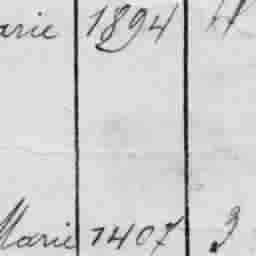 arie 1894 H
Marie 1407 3